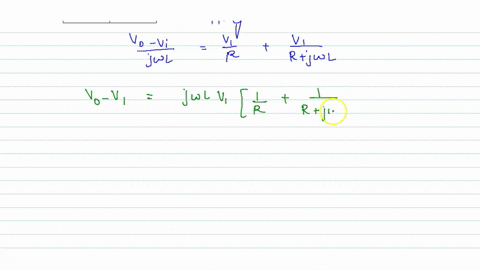 (V₀ - Vᵢ)/(jωL) = V₁/R + V₁/(R+jωL)
V₀ - V₁ = jωL V₁ [ 1/R + 1/(R+j